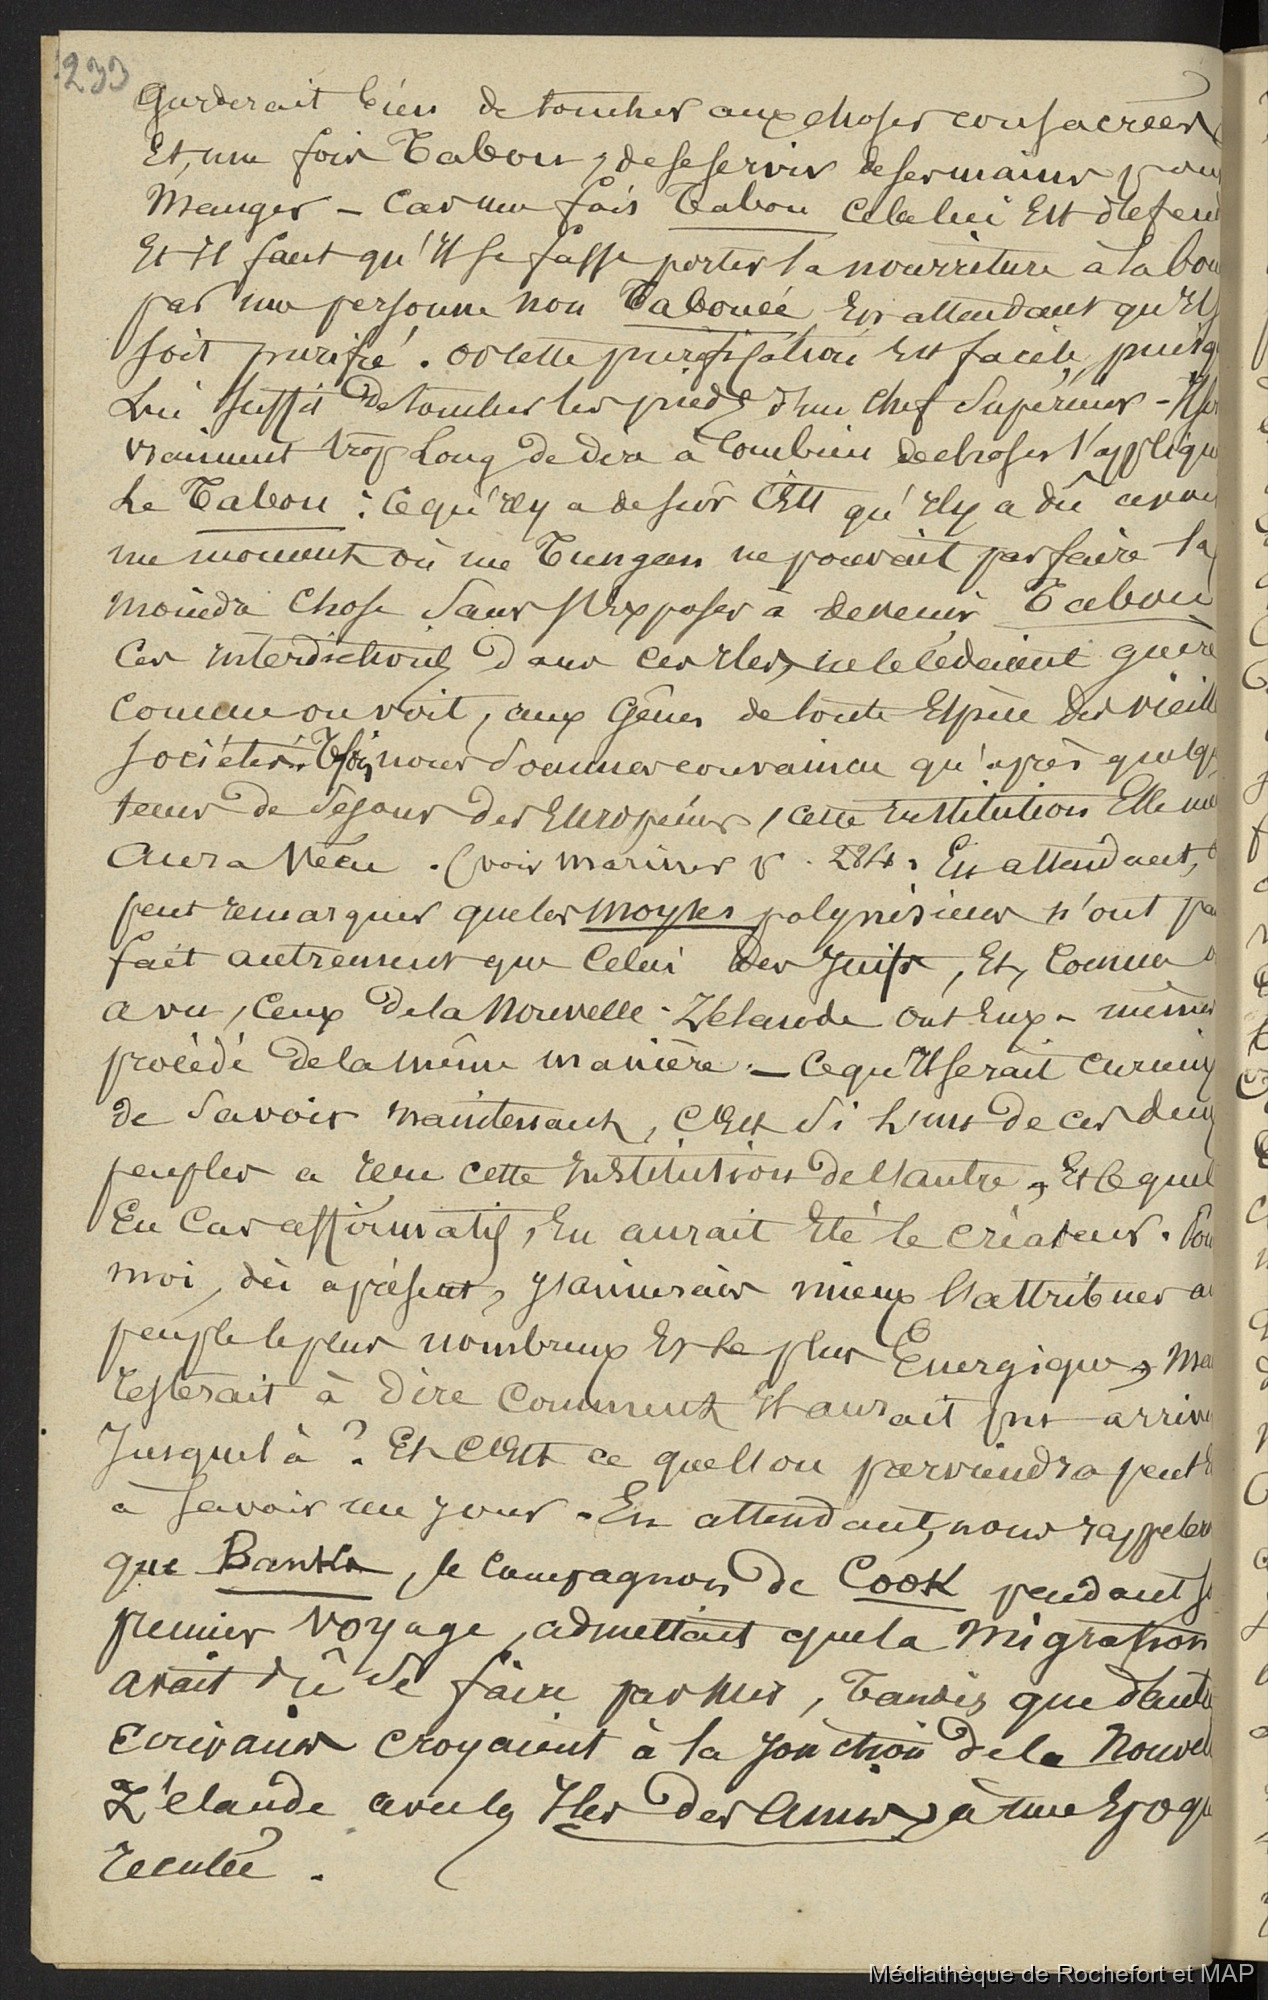 233
garderait bien de toucher aux choses consacrées
Et, une fois Tabou, de se servir de ses mains pour
manger - Car une fois Tabou cela lui Est défend
Et Il faut qu'Il se fasse porter la nourriture à la bou
par une personne non Tabouée En attendant qu'Il
soit purifié. or cette purification Est facile, puisq
Lui suffit de toucher les pieds d'un Chef Supérieur - Il se
vraiment trop Long de dire à Combien de choses s'appliqu
Le Tabou : Ce qu'Il y a de sûr C'Est qu'Il y a dû avoi
un moment où un Tungan ne pouvait pas faire la
moindre Chose Sans s'Exposer à devenir Tabou
Ces Interdictions Dans Ces Iles, ne le cédaient guère
Comme on voit, aux Gênes de toute Espèce des vieill
sociétés. nous Sommes convaincu qu'après quelq
tems de Séjour des Européens, cette Institution Elle me
Aura Vécu. (voir Mariner p. 284. En attendant,
peut remarquer que les Moyses polynésiens n'ont pa
fait autrement que Celui des Juifs, Et, Comme o
a vu, Ceux de la Nouvelle-Zélande ont Eux-mêmes
procédé de la même manière. - Ce qu'Il serait Curieux
de Savoir maintenant, C'Est Si L'un de ces deux
peuples a reçu cette Institution de l'autre, Et lequel
En Cas affirmatif, En aurait Eté le créateur. Pou
moi, dès à présent, J'aimerais mieux l'attribuer a
peuple le plus nombreux Et le plus Energique, Ma
resterait à Dire Comment Il aurait pu arrive
Jusque là ? Et C'Est ce que l'on parviendra peut
à Savoir un Jour. En attendant, nous rappeler
que Banks, le Compagnon de Cook pendant s
premier Voyage, admettait que la Migration
avait dû se faire par Mer, Tandis que d'autre
Ecrivains croyaient à la Jonction de la Nouvel
Zélande avec les Iles des Amis, à une Epoqu
reculée.
Médiathèque de Rochefort et MAP